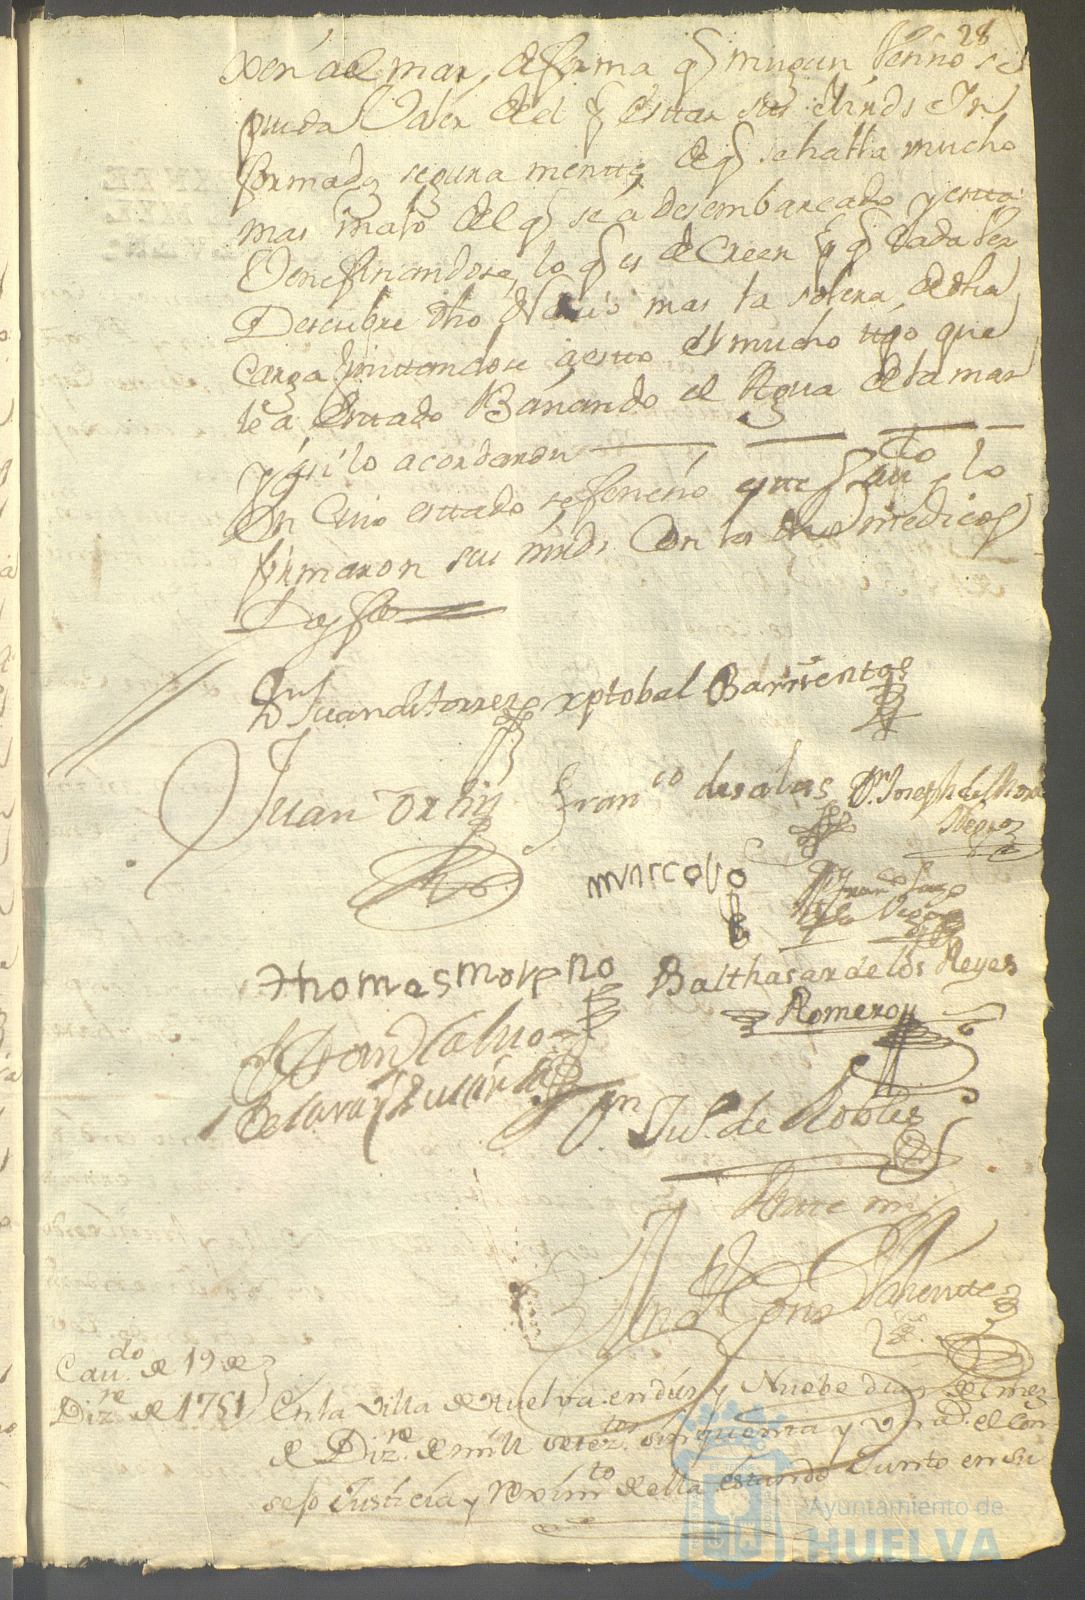 28
xen del mar, de forma q ningun senno se
pueda Valer del q estar sus mrds Yn
formados seguramente de q se halla mucho
mas malo del q se a desembarcado y esta
lo q es de Creer q q Cada Vez
Descubre dho mas la solera de dha
Carga juntandose a esto el mucho tpo que
le a estado Bañando el Agua de la mar
y asi lo acordaron
En Cuio esttado se feneció este Caudo, lo
firmaron sus mrds Con los dhos medicos
Doy fee
Dn Juan de torres xptobal Barrientos
Juan Ortiz Franco de salas Dn Joseph de
Negro
marcos
Franco Lazo
de la Vega
Thomas moreno Balthasar de los Reyes
Romero
Calbo
Dn Jul. de Robles
Ante mi
Caudo de 19 de
Dizre de 1751
En la Villa de Huelva en diez y Nuebe dias del mez
de Dizre de mill setezos sinquenta y un ad. el Con
sejo Justicia y Reximto de ella estando Junto en su
Ayuntamiento de
HUELVA